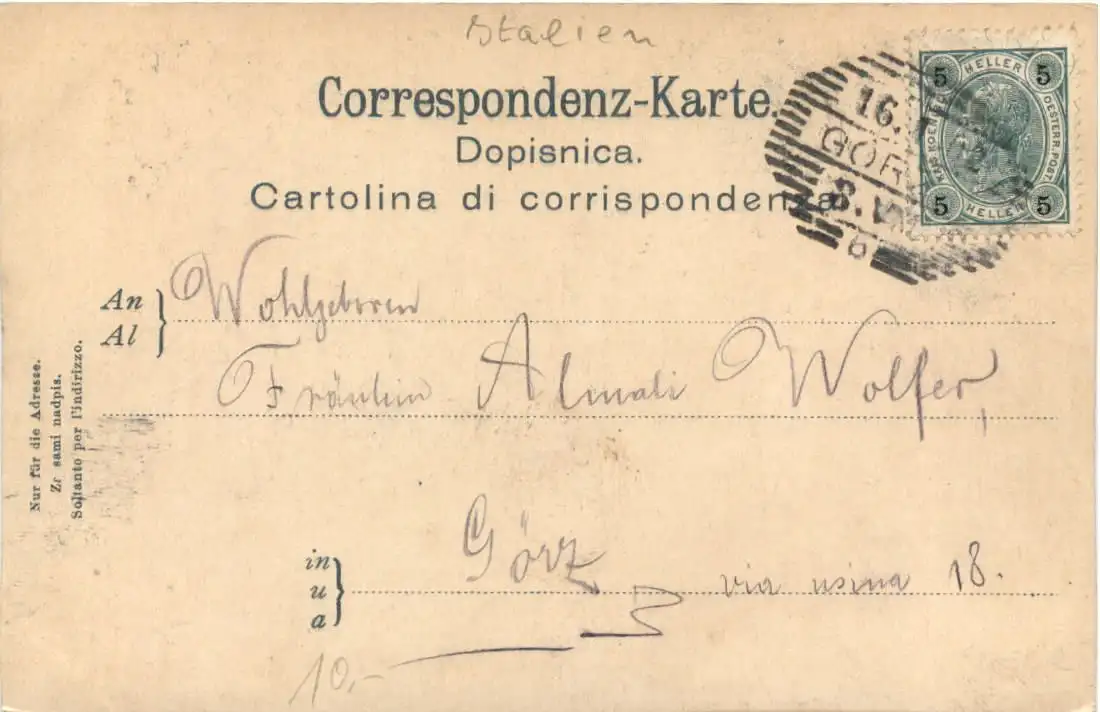 Italien
Correspondenz-Karte.
Dopisnica.
Cartolina di corrispondenza
5 HELLER 5
KAIS. KOENIGL. OESTERR. POST
5 HELLER 5
16.
GÖR
8. VII
6
An
Al
Wohlgeboren
Fräulein Almati Wolfer,
in
u
a
Görz via usina 18.
10,-
Nur für die Adresse.
Za sami nadpis.
Soltanto per l'indirizzo.